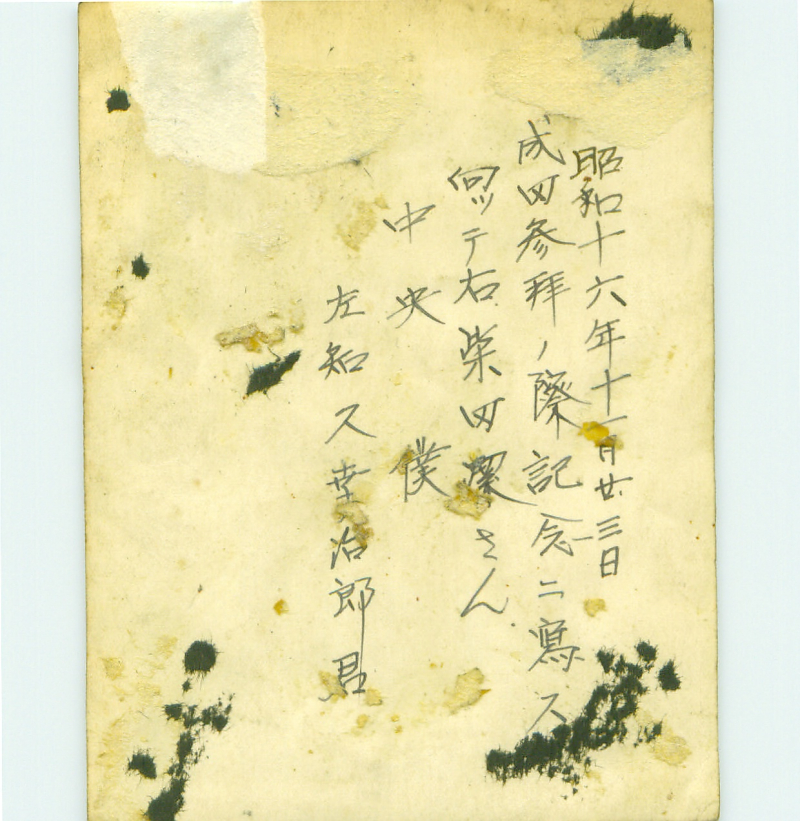 昭和十六年十一月廿三日
成田参拝ノ際記念ニ寫ス
向ッテ右柴田さん
中央 僕
左知ス幸治郎君